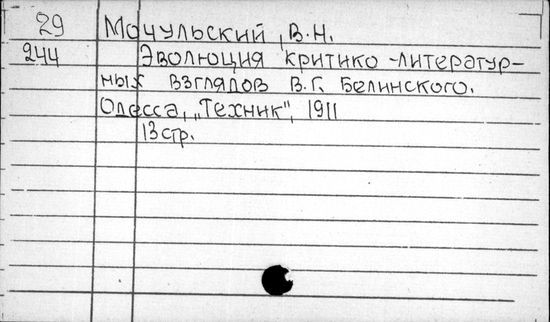 29 Мочульский, В.Н.
244 Эволюция критико-литератур-
ных взглядов В.Г. Белинского.
Одесса, „Техник", 1911
13 стр.